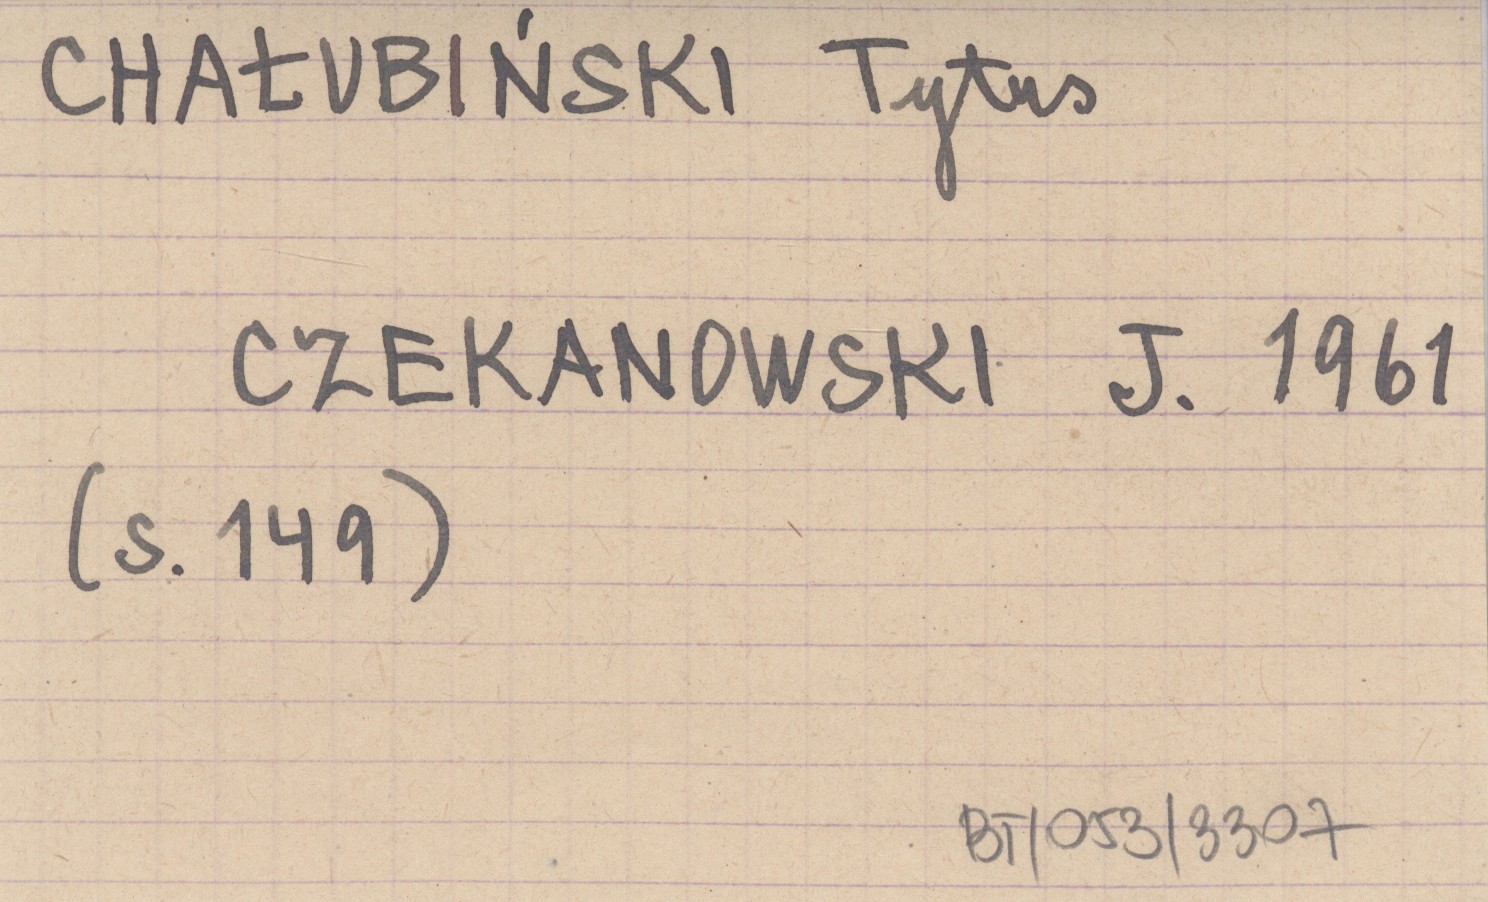 CHAŁUBIŃSKI Tytus
CZEKANOWSKI J. 1961
(s. 149)
BT/053/3307